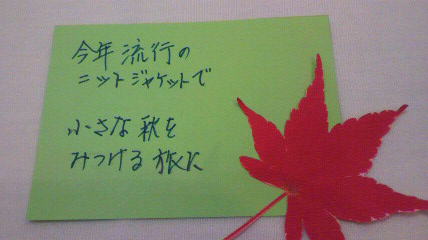 今年流行の
ニットジャケットで
小さな秋を
みつける旅に